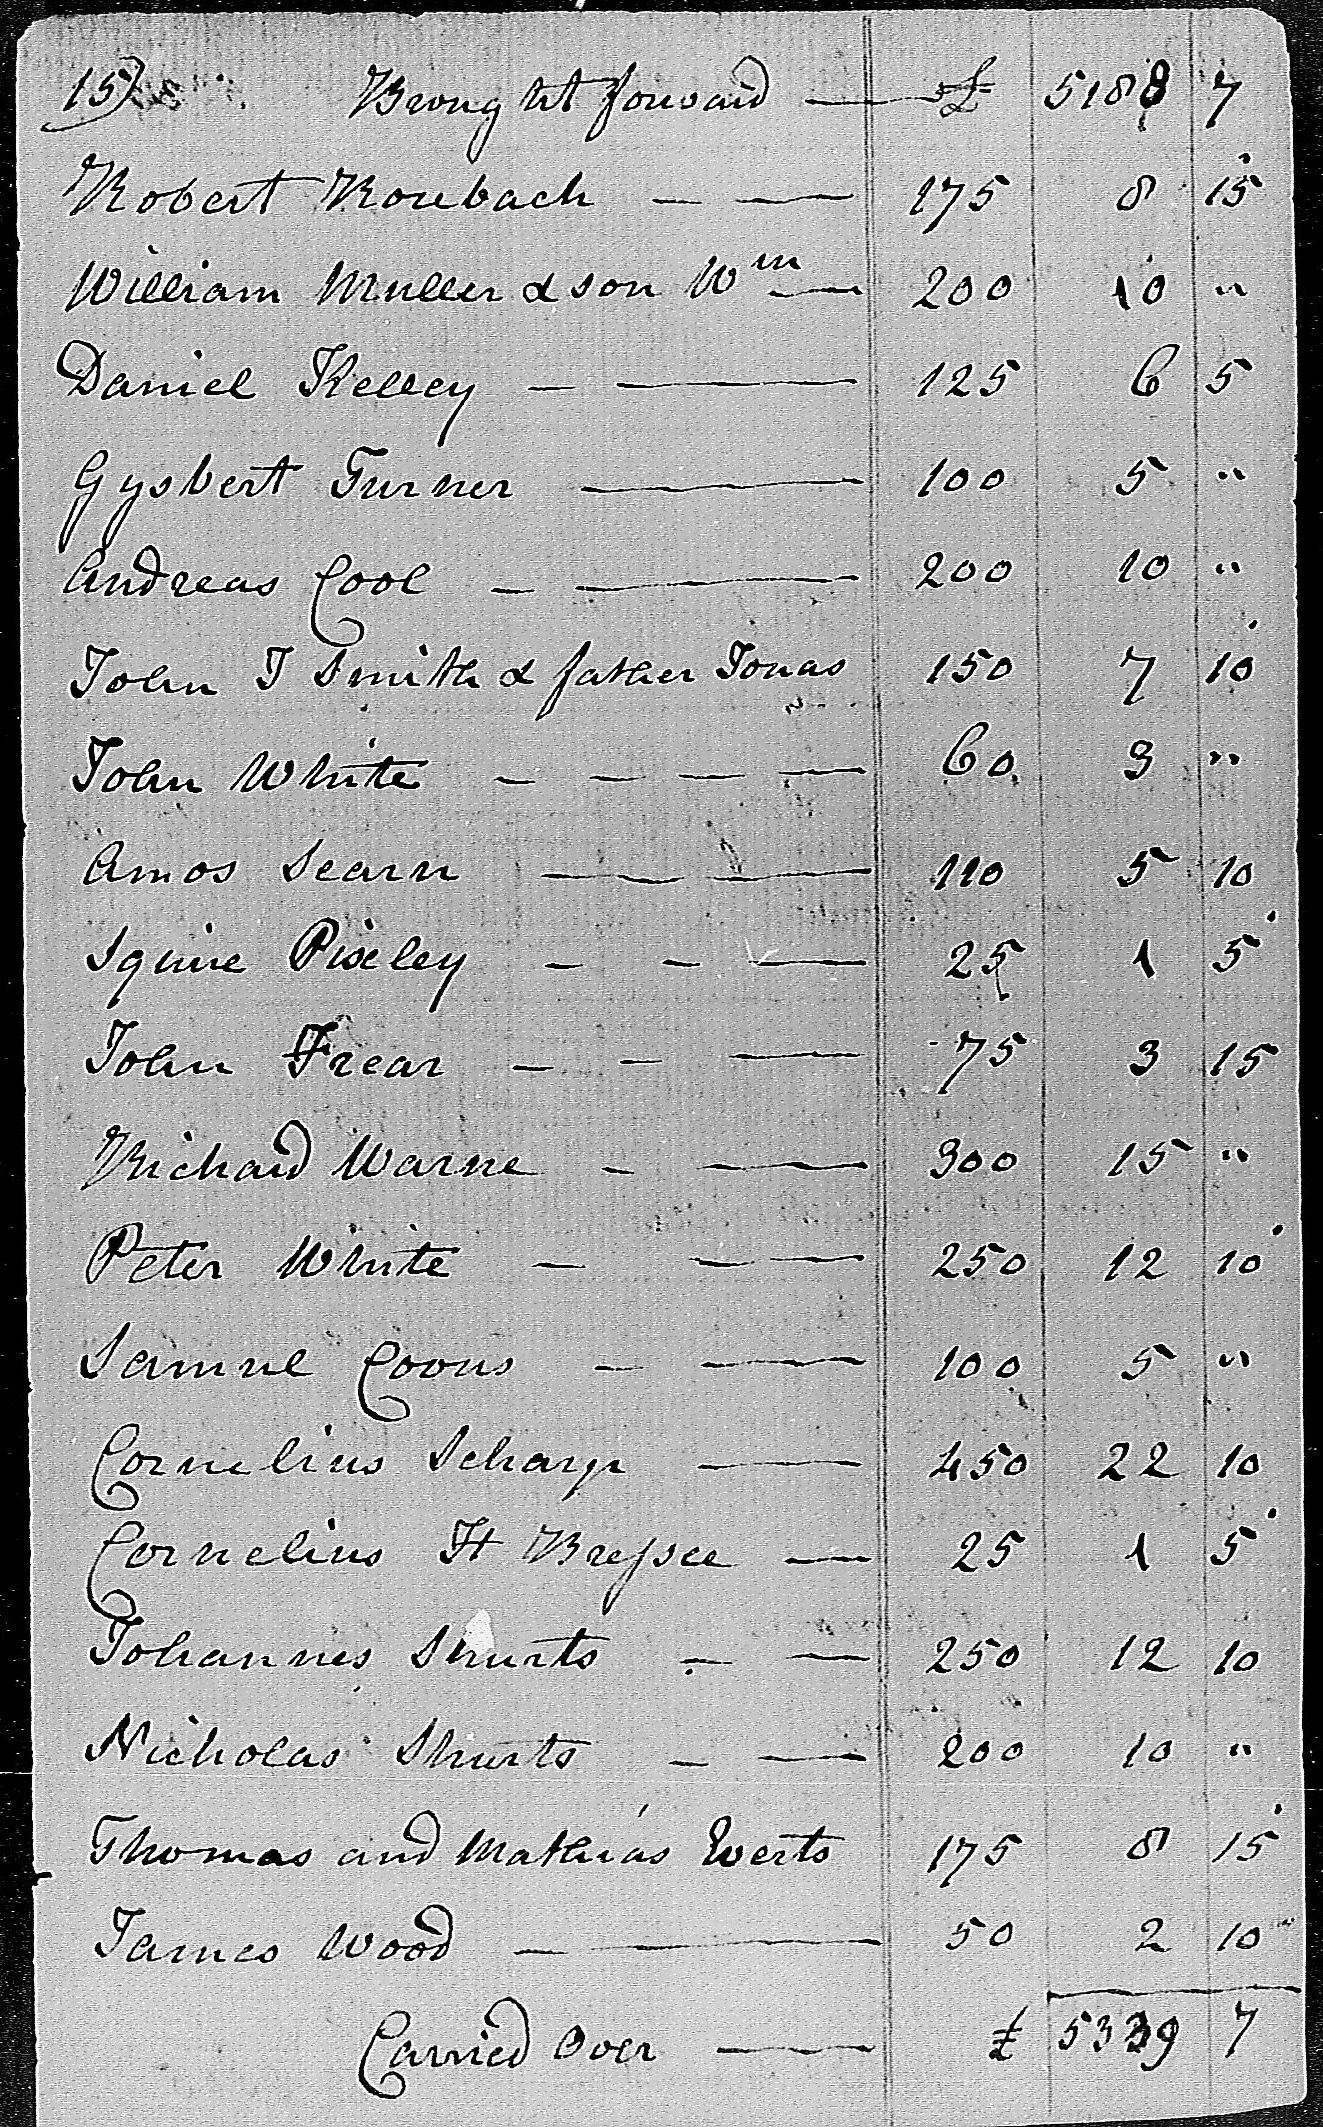 15) Brought forward — £ 5188 7
Robert Rorebach — — 175 8 15
William Muller & son Wm — 200 10 "
Daniel Kelley — — 125 6 5
Gysbert Turner — 100 5 "
Andreas Cool — — 200 10 "
John J Smith & father Jonas 150 7 10
John White — — — — 60 3 "
Amos Searn — — 110 5 10
Squire Pixley — — — 25 1 5
John Frear — — — 75 3 15
Richard Warne — — 300 15 "
Peter White — — — 250 12 10
Samuel Coons — — 100 5 "
Cornelius Scharp — 450 22 10
Cornelius H Bressee — 25 1 5
Johannes Shurts — — 250 12 10
Nicholas Shurts — — 200 10 "
Thomas and Mathias Everts 175 8 15
James Wood — — 50 2 10
Carried Over — £ 5339 7